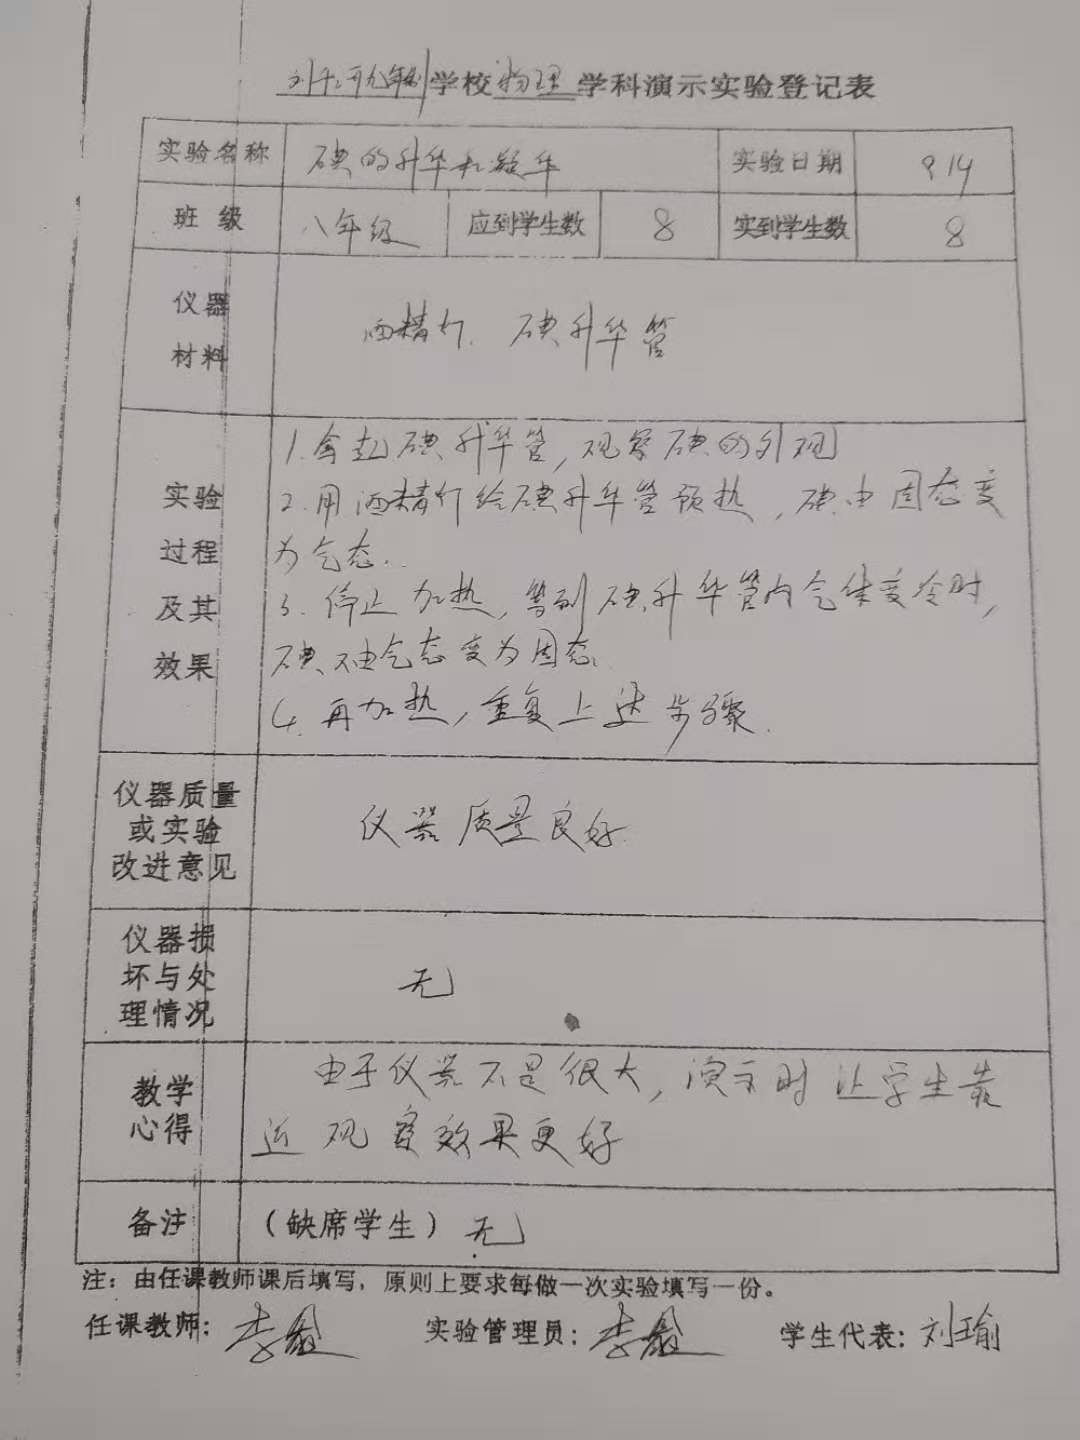 九年制学校物理学科演示实验登记表
实验名称 碘的升华和凝华 实验日期 9.14
班级 八年级 应到学生数 8 实到学生数 8
仪器
材料
酒精灯. 碘升华管
实验
过程
及其
效果
1.拿起碘升华管,观察碘的外观
2.用酒精灯给碘升华管预热,碘由固态变
为气态..
3.停止加热,等到碘升华管内气体变冷时,
碘由气态变为固态.
4.再加热,重复上述步骤.
仪器质量
或实验
改进意见
仪器质量良好
仪器损
坏与处
理情况
无
教学
心得
由于仪器不是很大,演示时让学生靠
近观察效果更好
备注 (缺席学生)无
注:由任课教师课后填写,原则上要求每做一次实验填写一份。
任课教师: 李 实验管理员: 李 学生代表: 刘瑜